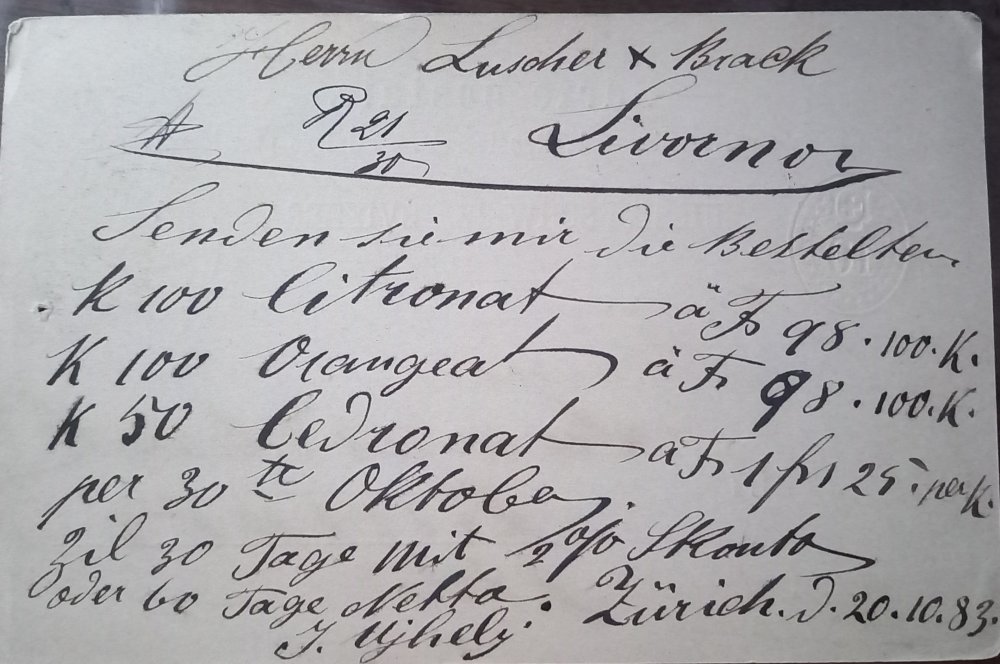 Herrn Luscher & Brack
R 21/30 Livorno
Senden sie mir die Bestelten
K 100 Citronat à Fr 98. 100. K.
K 100 Orangeat à Fr 98. 100. K.
K 50 Cedronat à Fr 1 frs 25. per K.
per 30te Oktober.
Zil 30 Tage mit 2% Skonto
oder 60 Tage Netto. Zürich. d. 20. 10. 83.
J. Ujhely.